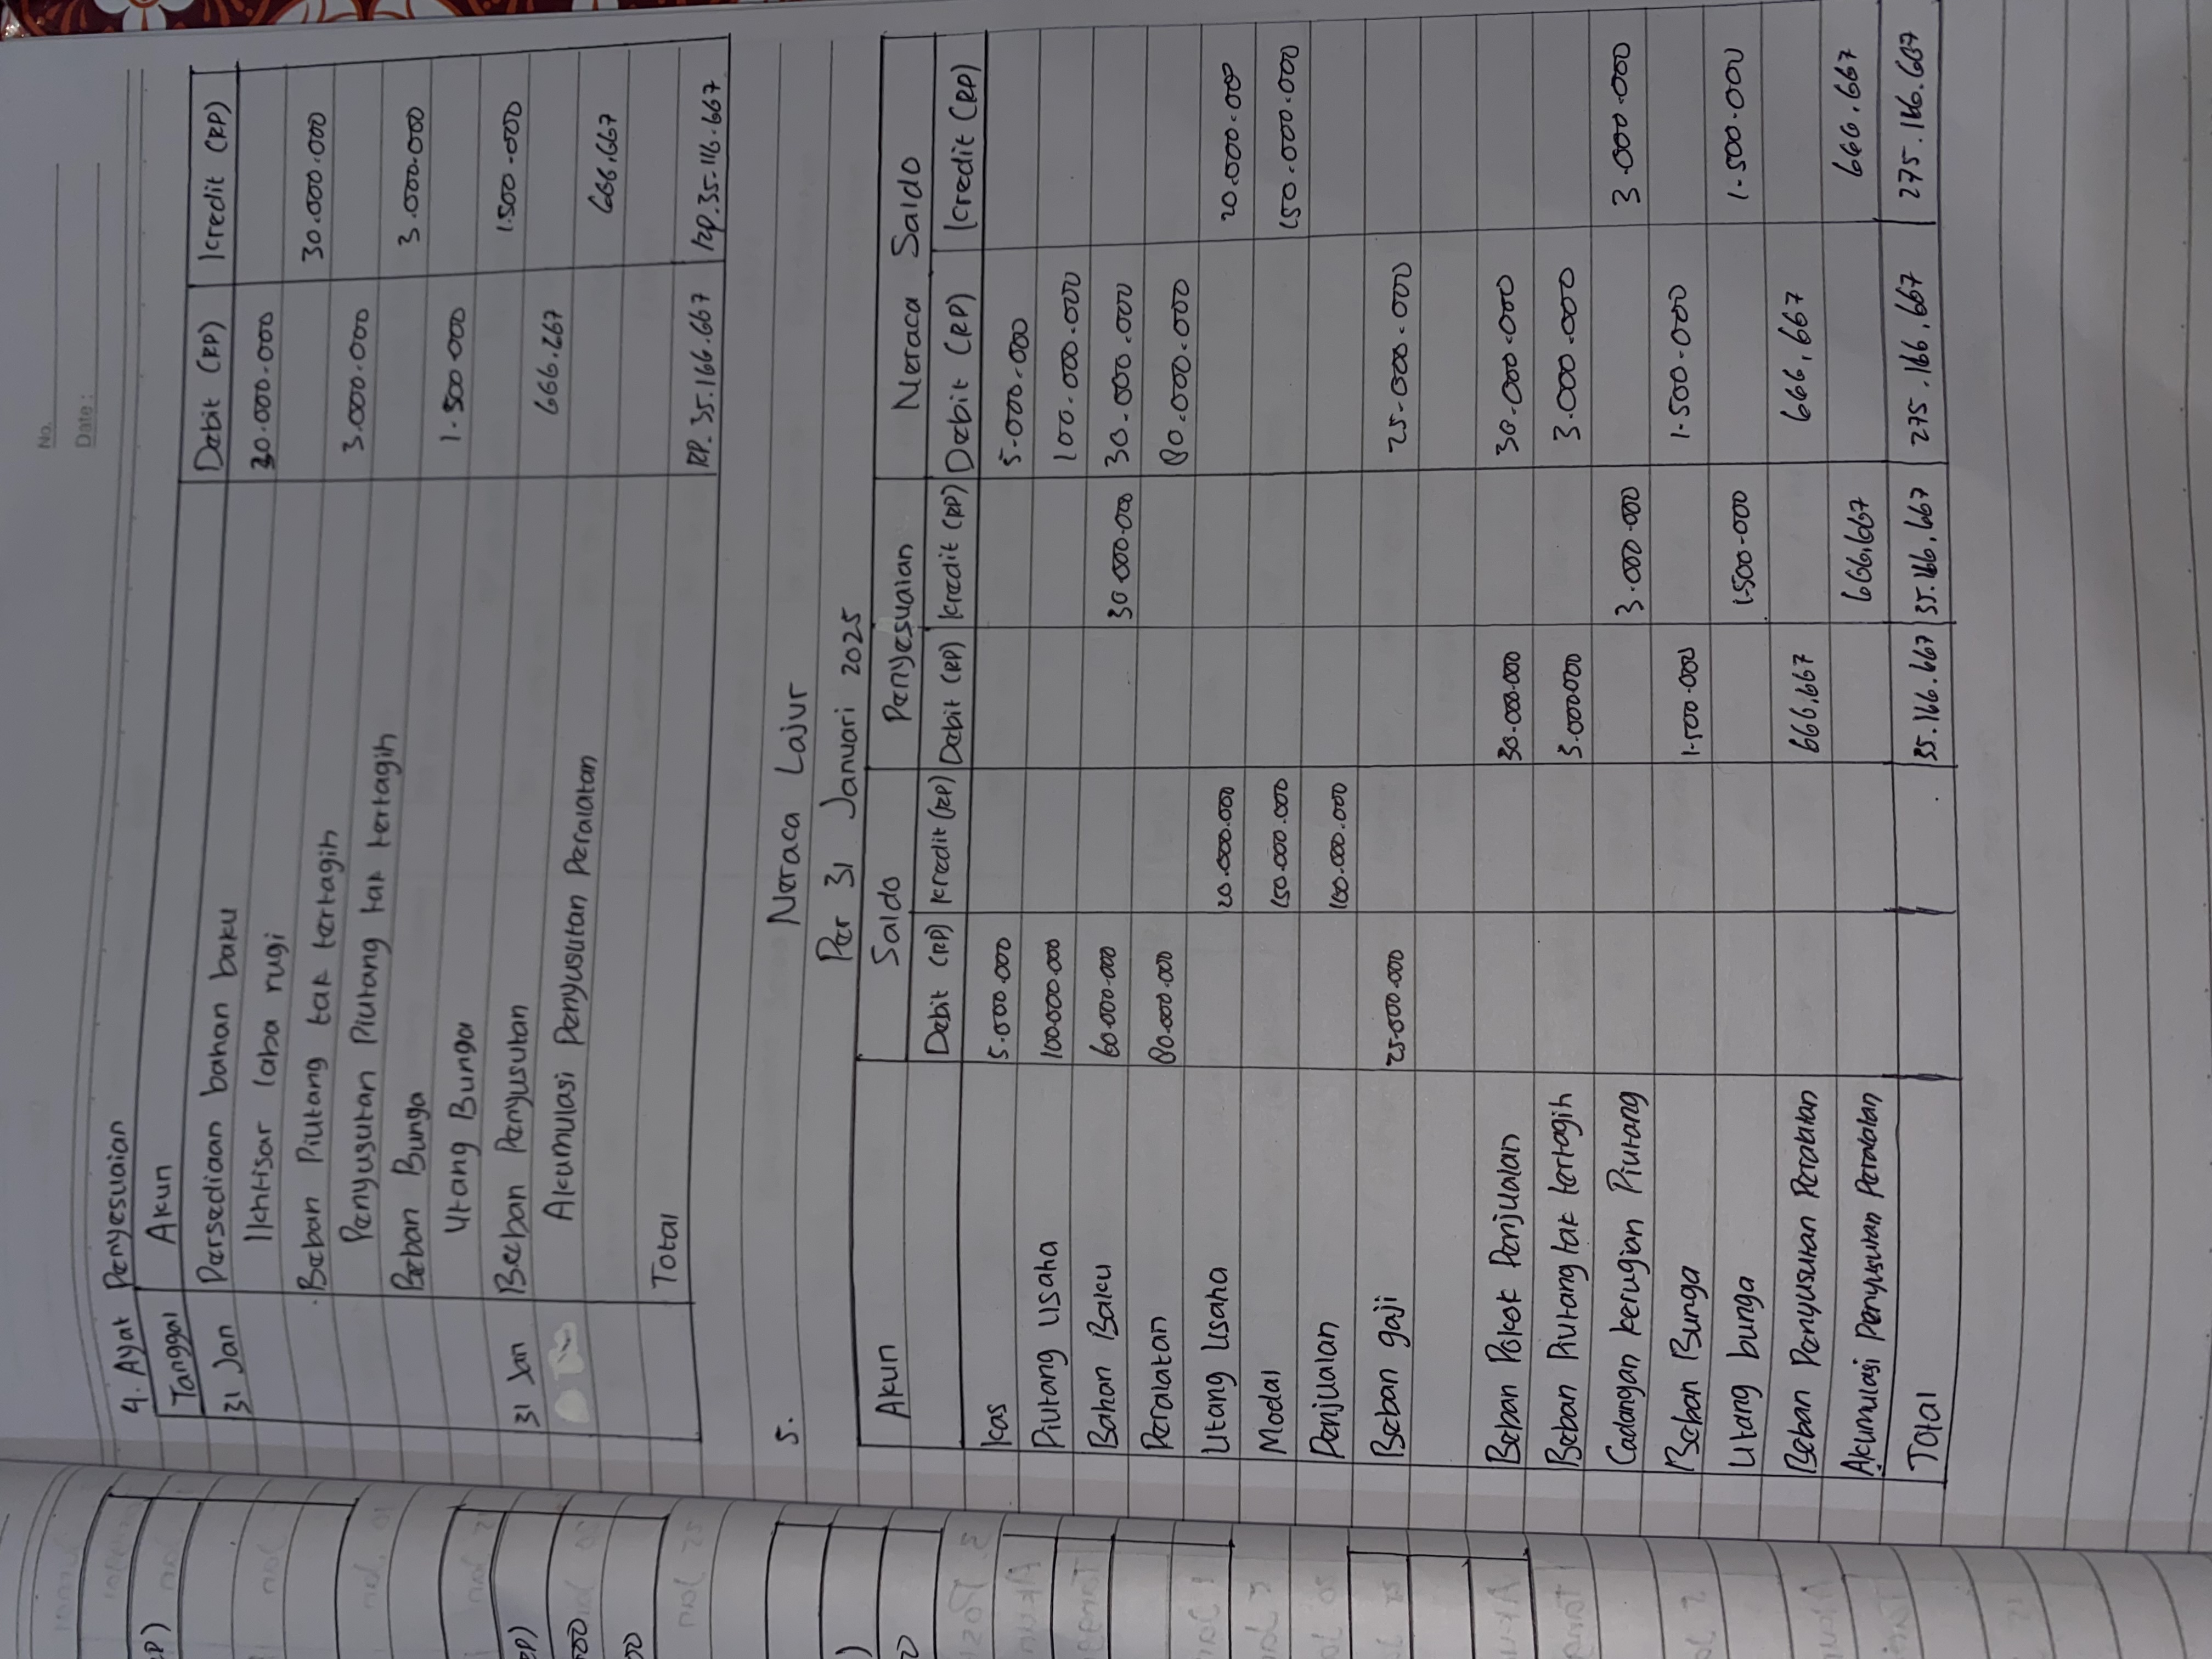 No.
Date :
4. Ayat Penyesuaian
Tanggal Akun Debit (RP) Kredit (RP)
31 Jan Persediaan bahan baku 30.000.000
Ikhtisar laba rugi 30.000.000
Beban Piutang tak tertagih 3.000.000
Penyusutan Piutang tak tertagih 3.000.000
Beban Bunga 1.500.000
Utang Bunga 1.500.000
31 Jan Beban Penyusutan 666.667
Akumulasi Penyusutan Peralatan 666.667
Total RP.35.166.667 RP.35.116.667
5. Neraca Lajur
Per 31 Januari 2025
Akun Saldo Penyesuaian Neraca Saldo
Debit (RP) Kredit (RP) Debit (RP) Kredit (RP) Debit (RP) Kredit (RP)
Kas 5.000.000 5.000.000
Piutang Usaha 100.000.000 100.000.000
Bahan Baku 60.000.000 30.000.000 30.000.000
Peralatan 80.000.000 80.000.000
Utang Usaha 20.000.000 20.000.000
Modal 150.000.000 150.000.000
Penjualan 100.000.000
Beban gaji 25.000.000 25.000.000
Beban Pokok Penjualan 30.000.000 30.000.000
Beban Piutang tak tertagih 3.000.000 3.000.000
Cadangan kerugian Piutang 3.000.000 3.000.000
Beban Bunga 1.500.000 1.500.000
Utang bunga 1.500.000 1.500.000
Beban Penyusutan Peralatan 666.667 666.667
Akumulasi Penyusutan Peralatan 666.667 666.667
Total 35.166.667 35.166.667 275.166.667 275.166.667